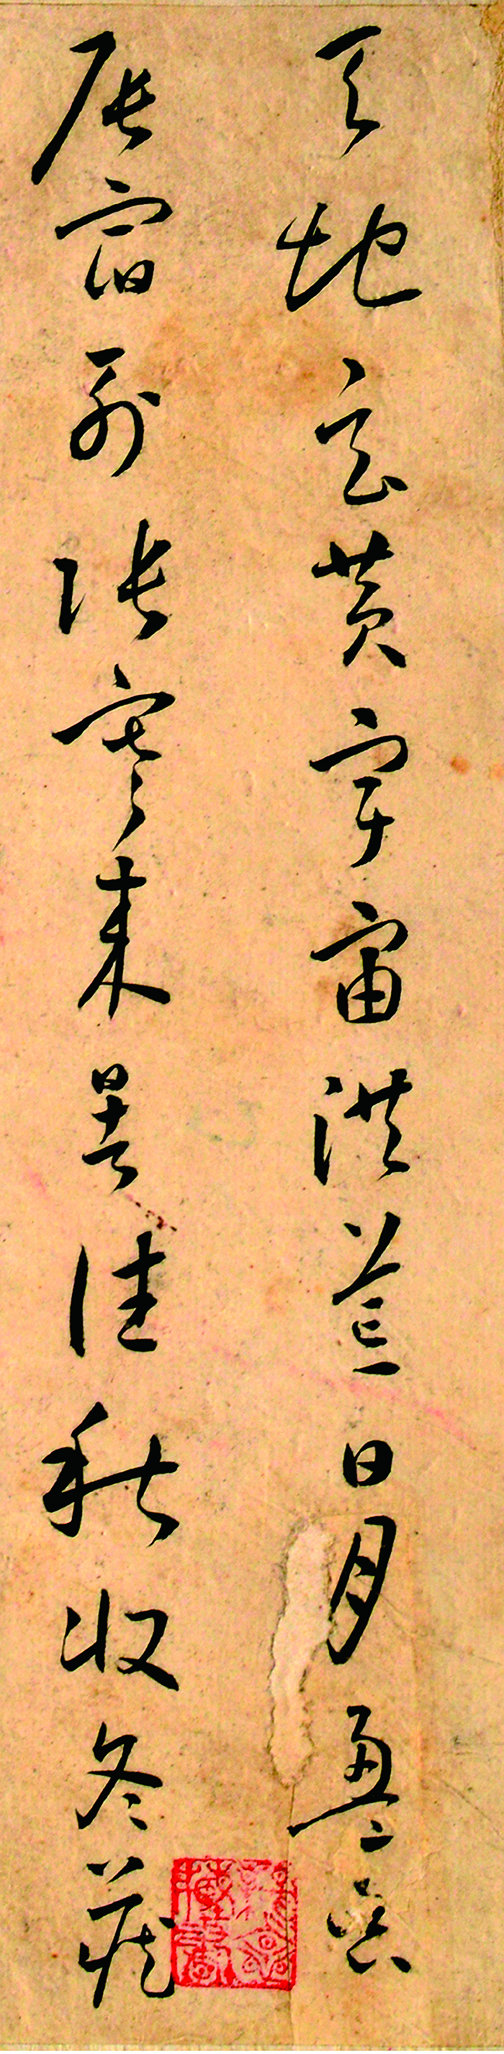 天地玄黃宇宙洪荒日月盈昃
辰宿列張寒來暑往秋收冬藏